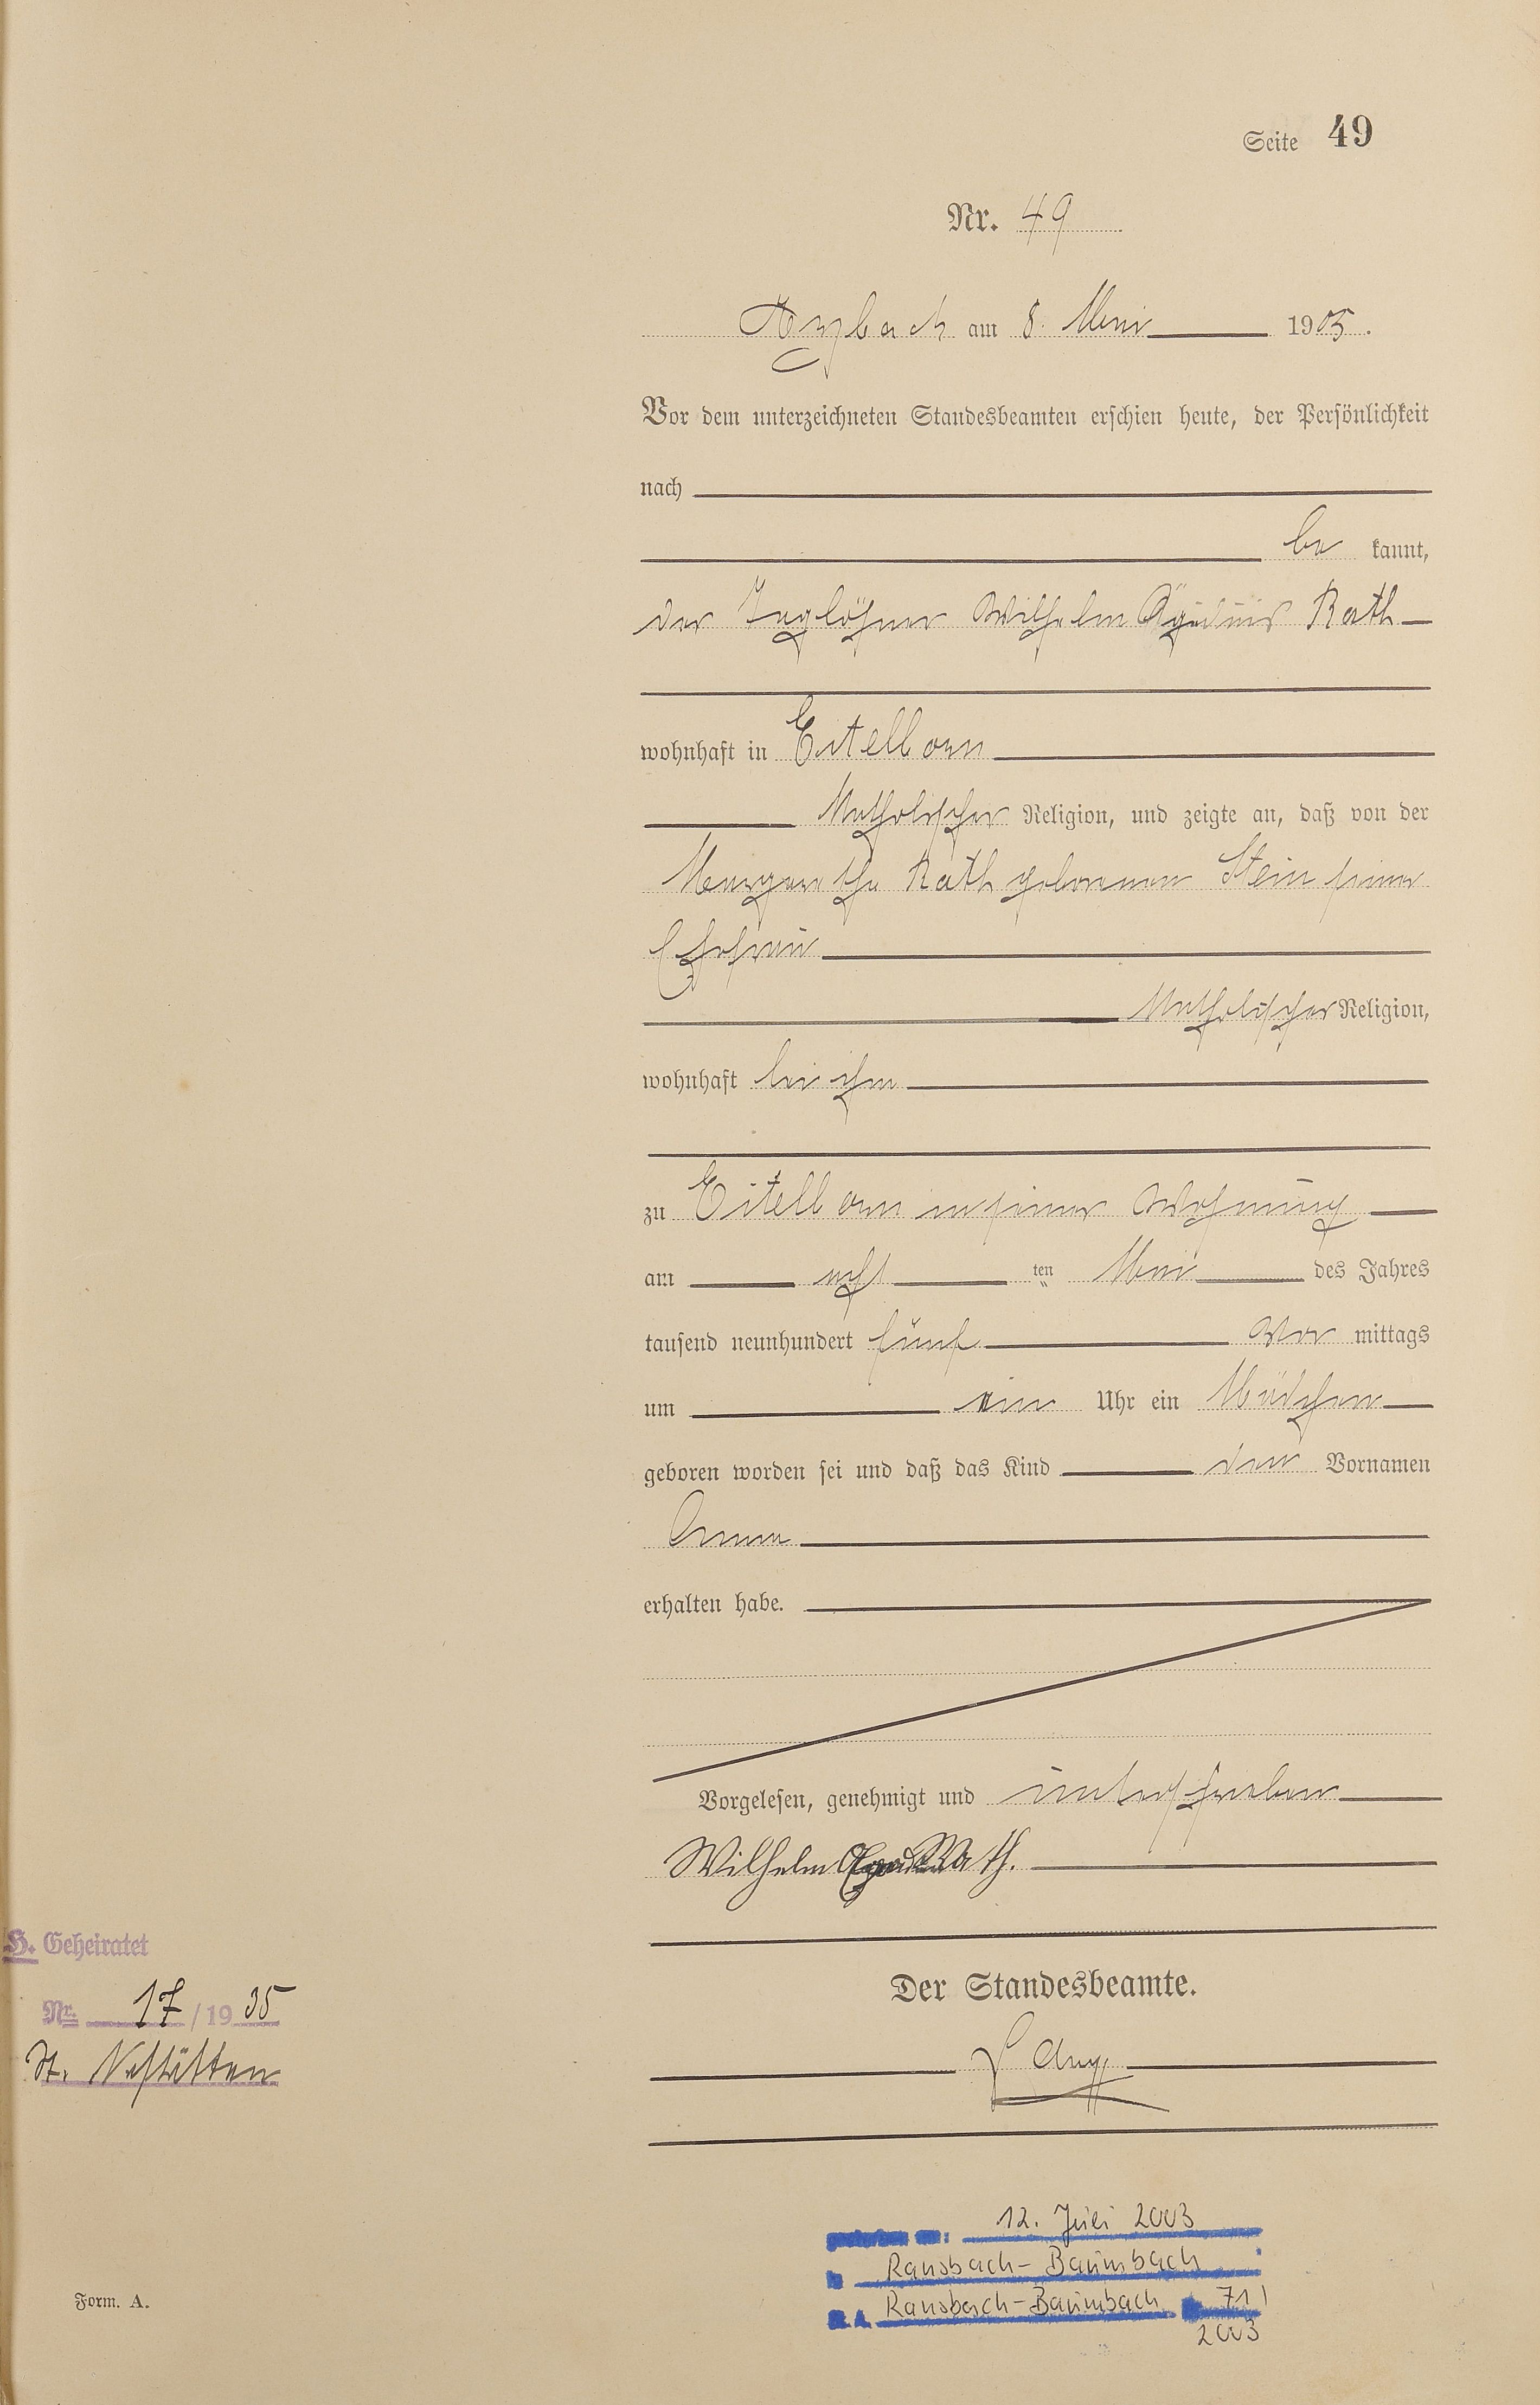 Seite 49
Nr. 49
Arzbach am 8. Mai 1905.
Vor dem unterzeichneten Standesbeamten erschien heute, der Persönlichkeit
nach
be kannt,
der Taglöhner Wilhelm Ägidius Rath
wohnhaft in Eitelborn
katholischer Religion, und zeigte an, daß von der
Margarethe Rath geborenen Stein seiner
Ehefrau
katholischer Religion,
wohnhaft bei ihm
zu Eitelborn in seiner Wohnung
am acht ten Mai des Jahres
tausend neunhundert fünf Vor mittags
um ein Uhr ein Mädchen
geboren worden sei und daß das Kind den Vornamen
Anna
erhalten habe.
Vorgelesen, genehmigt und unterschrieben
Wilhelm Rath.
H. Geheiratet
Nr. 17/1935
St. Nastätten
Der Standesbeamte.
Form. A.
gestorben am: 12. Juli 2003
in Ransbach-Baumbach
St. A. Ransbach-Baumbach Nr. 71/
2003